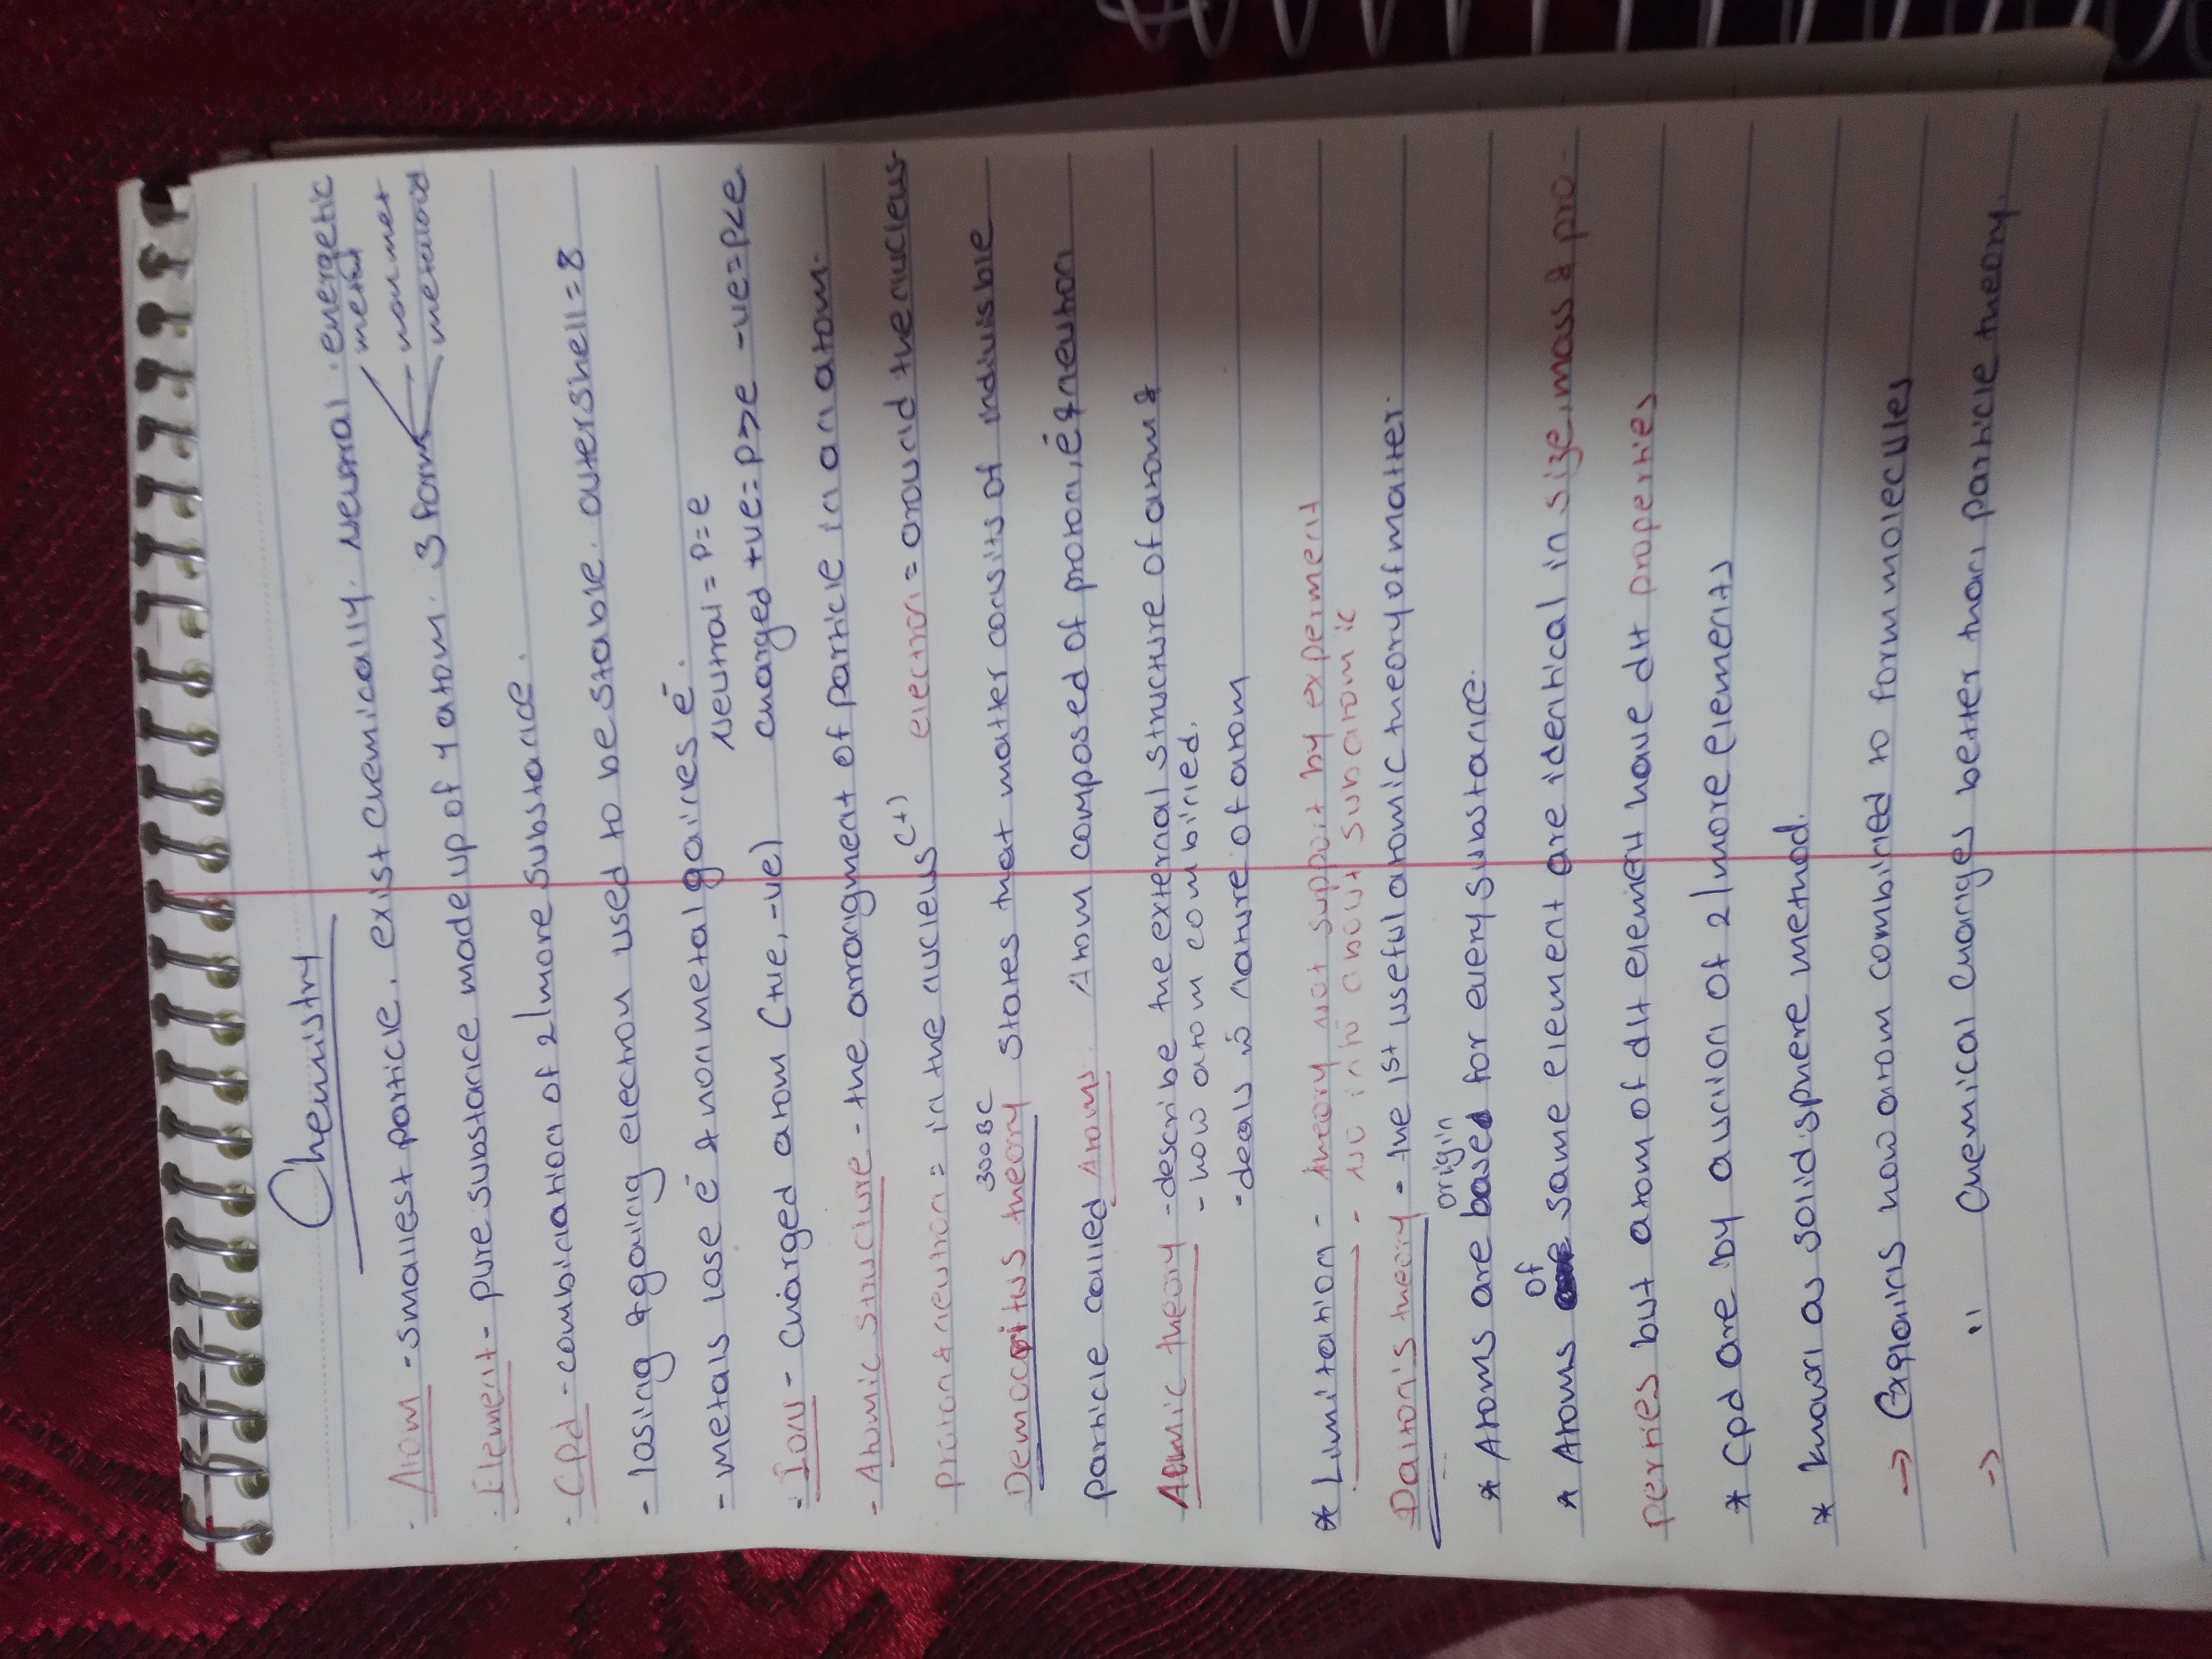 Chemistry
· Atom - smallest particle. exist chemically. Neutral . energetic
· Element - pure substance made up of 1 atom. 3 form
metal
nonmet
metaloid
· Cpd - combination of 2/more substance.
- losing & gaining electron used to be stable. outershell = 8
- metals lose e⁻ & nonmetal gaines e⁻.
Neutral = P=e
- Ion - charged atom (+ve, -ve) charged +ve = P>e -ve=P<e
- Atomic structure - the arrangment of particle in an atom.
proton & neutron = in the nucleus (+) electron = around the nucleus
300BC
Democritus theory states that matter consits of indivisble
particle called Atoms. Atom composed of proton, e⁻ & neutron
Atomic theory - describe the external structure of atom &
- how atom combined.
- deals w nature of atom
* Limitation - theory not support by experment
- No info about subatomic
Dalton's theory - the 1st useful atomic theory of matter.
origin
* Atoms are based for every substance.
of
* Atoms same element are identical in size, mass & pro-
perties but atom of dt element have dt properties
* Cpd are by aunion of 2/more elements
* known as solid sphere method.
→ Explains how atom combined to form molecules
→ " chemical changes better than particle theory.